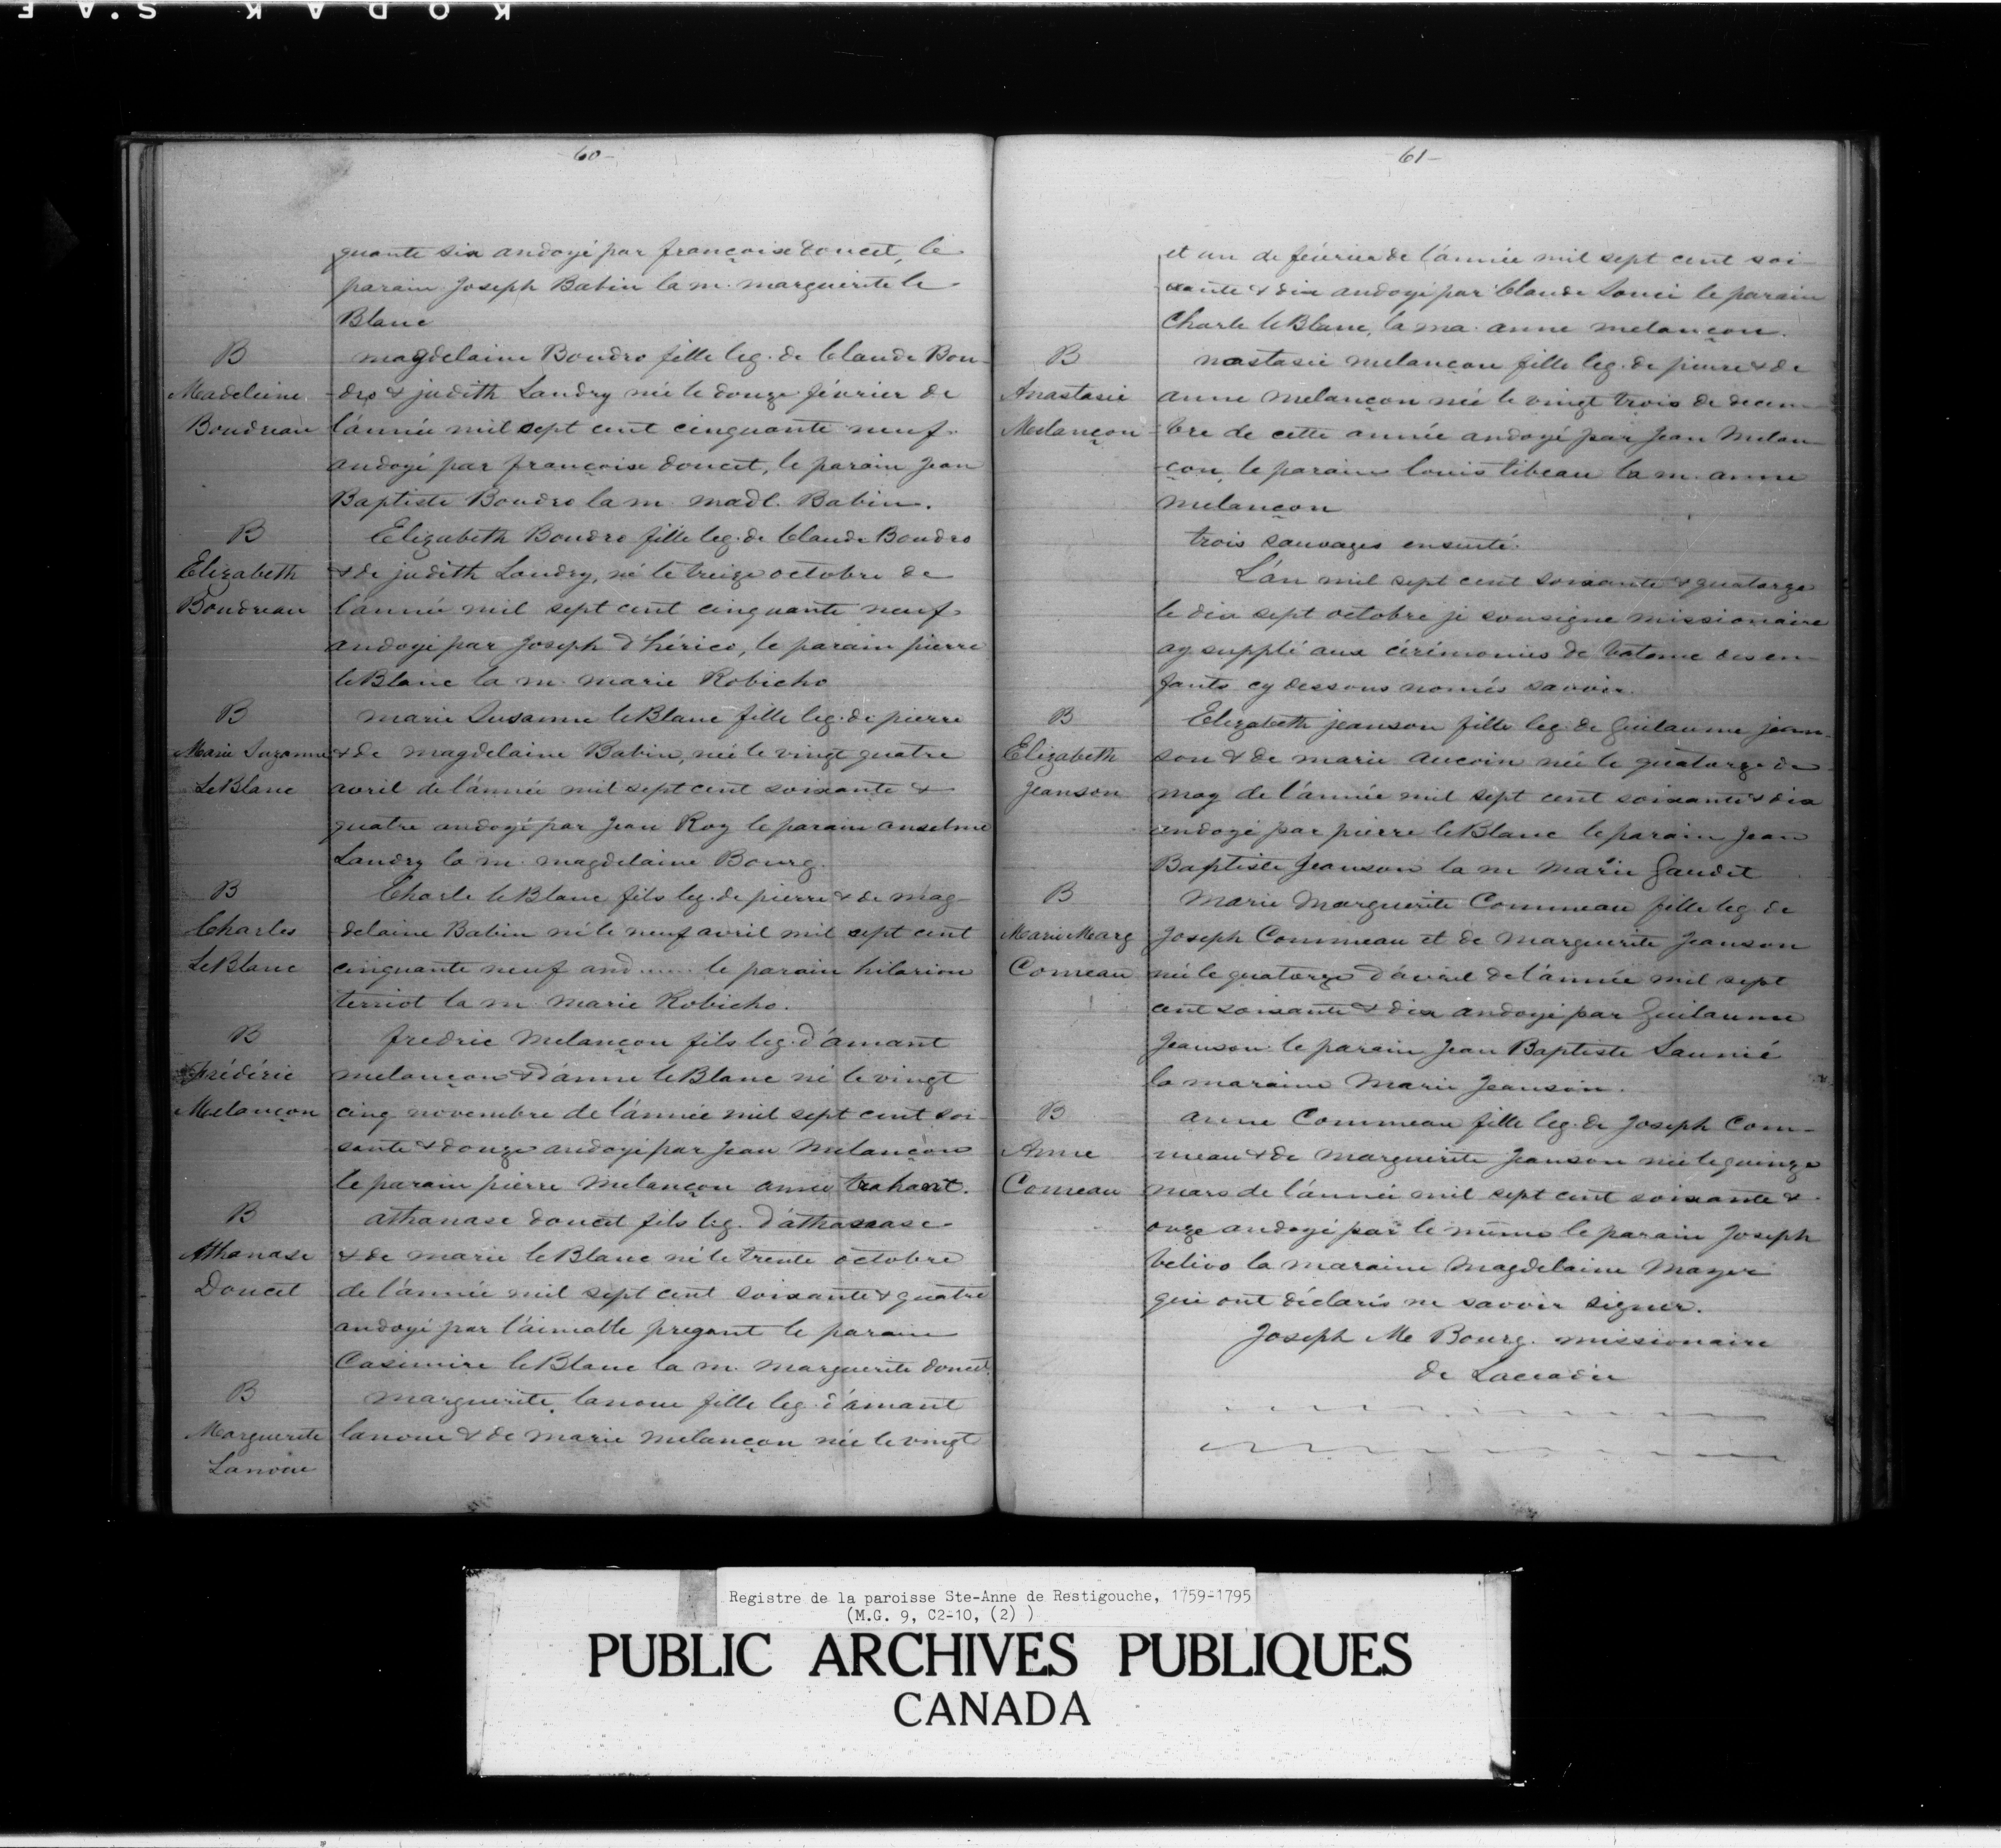 KODAK S.A.F
60-
quante six andoyé par françoise doucet, le
parain Joseph Babin la m. marguerite le
Blanc
B
Madeleine
Boudreau
magdelaine Boudro fille leg. de Claude Bou-
dro & judith Landry née le douze février de
l'année mil sept cent cinquante neuf
andoyé par françoise doucet, le parain Jean
Baptiste Boudro la m. madl. Babin.
B
Elizabeth
Boudreau
Elizabeth Boudro fille leg. de Claude Boudro
& de judith Landry, né le treize octobre de
l'année mil sept cent cinquante neuf
andoyé par Joseph d'hérico, le parain pierre
leBlanc la m. marie Robicho
B
Marie Suzanne
LeBlanc
marie Susanne leBlanc fille leg. de pierre
& de magdelaine Babin, née le vingt quatre
avril de l'année mil sept cent soixante &
quatre andoyé par Jean Roy le parain anselme
Landry la m. magdelaine Bourg.
B
Charles
LeBlanc
Charle leBlanc fils leg. de pierre & de mag-
delaine Babin né le neuf avril mil sept cent
cinquante neuf and...... le parain hilarion
terriot la m. marie Robicho.
B
Frédéric
Melançon
fredric Melançon fils leg. d'amant
melançon & d'anne leBlanc né le vingt
cinq novembre de l'année mil sept cent soi-
sante & douze andoyé par Jean Melançon
le parain pierre Melançon anne trahant.
B
Athanase
Doucet
athanase doucet fils leg. d'athanase
& de marie leBlanc né le trente octobre
de l'année mil sept cent soixante & quatre
andoyé par l'aimable pregant le parain
Casimire leBlanc la m. marguerite doucet
B
Marguerite
Lanoue
marguerite lanoue fille leg. d'amant
lanoue & de marie melançon née le vingt
61-
et un de février de l'année mil sept cent soi-
xante & dix andoyé par Claude Souci le parain
Charle leBlanc, la ma. anne melançon.
B
Anastasie
Melançon
nastasie melançon fille leg. de pierre & de
anne melançon née le vingt trois de decem-
bre de cette année andoyé par Jean Melan-
çon, le parain louis tibeau la m. anne
melançon
trois sauvages ensuite.
L'an mil sept cent soixante & quatorze
le dix sept octobre je sousigne missionaire
ay supplé aux cérémonies de bateme des en-
fants cy dessous només savoir.
B
Elizabeth
Jeanson
Elizabeth jeanson fille leg. de Guilaume jean-
son & de marie aucoin née le quatorze de
may de l'année mil sept cent soixante & dix
andoyé par pierre leBlanc le parain Jean
Baptiste Jeanson la m. Marie Gaudet
B
Marie Marg
Comeau
Marie Marguerite Commeau fille leg. de
Joseph Commeau et de Marguerite Jeanson
née le quatorze d'avril de l'année mil sept
cent soixante & dix andoyé par Guilaume
Jeanson le parain Jean Baptiste Saunié
la maraine Marie Jeanson.
B
Anne
Comeau
anne Commeau fille leg. de Joseph Com-
meau & de marguerite Jeanson née le quinze
mars de l'année mil sept cent soixante &
onze andoyé par le même le parain Joseph
belivo la maraine Magdelaine Mayer
qui ont déclarés ne savoir signer.
Joseph M Bourg. missionaire
de Laccadie
Registre de la paroisse Ste-Anne de Restigouche, 1759-1795
(M.G. 9, C2-10, (2) )
PUBLIC ARCHIVES PUBLIQUES
CANADA